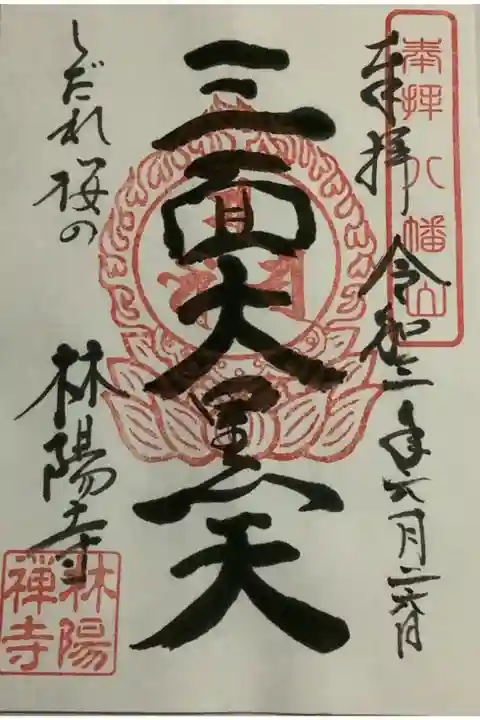 奉拝八幡山
奉拝 令和三年六月二六日
三面大黒天
しだれ桜の
林陽寺
林陽
禅寺